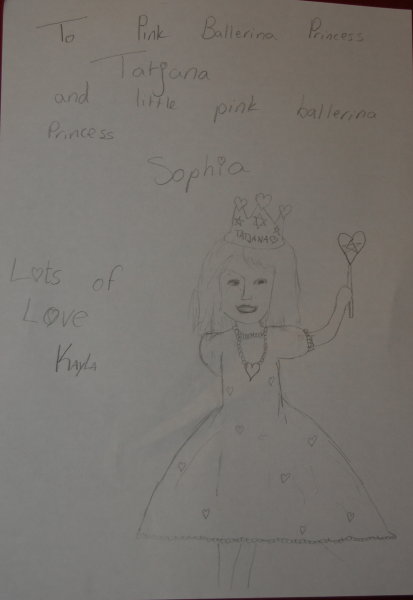 To Pink Ballerina Princess
Tatjana
and little pink ballerina
Princess
Sophia
TATJANA
Lots of
Love
Kayla